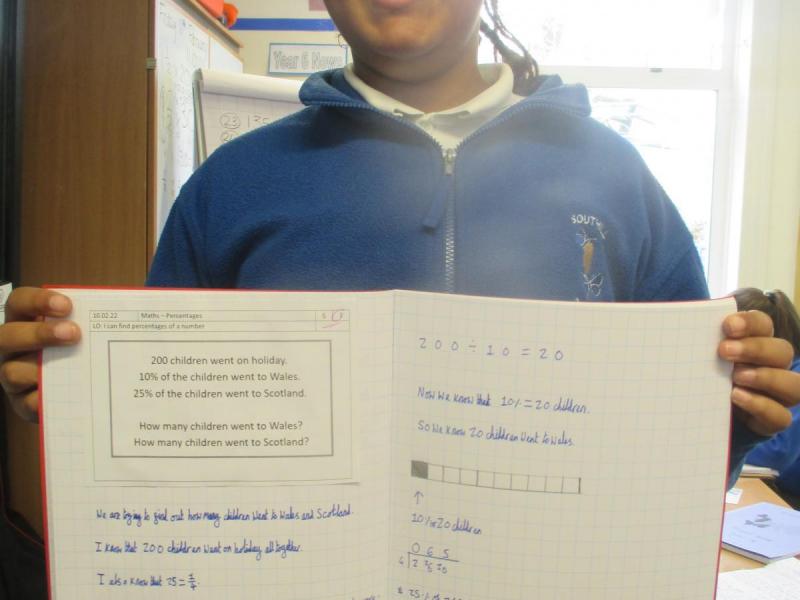 Year 6 News
23
SOUTH
10.02.22 Maths – Percentages S
LO: I can find percentages of a number
200 children went on holiday.
10% of the children went to Wales.
25% of the children went to Scotland.
How many children went to Wales?
How many children went to Scotland?
We are trying to find out how many children went to Wales and Scotland.
I know that 200 children went on holiday all together.
I also know that 25 = 1/4.
200 ÷ 10 = 20
Now we know that 10% = 20 children.
So we know 20 children went to Wales.
↑
10% = 20 children
0 6 5
4